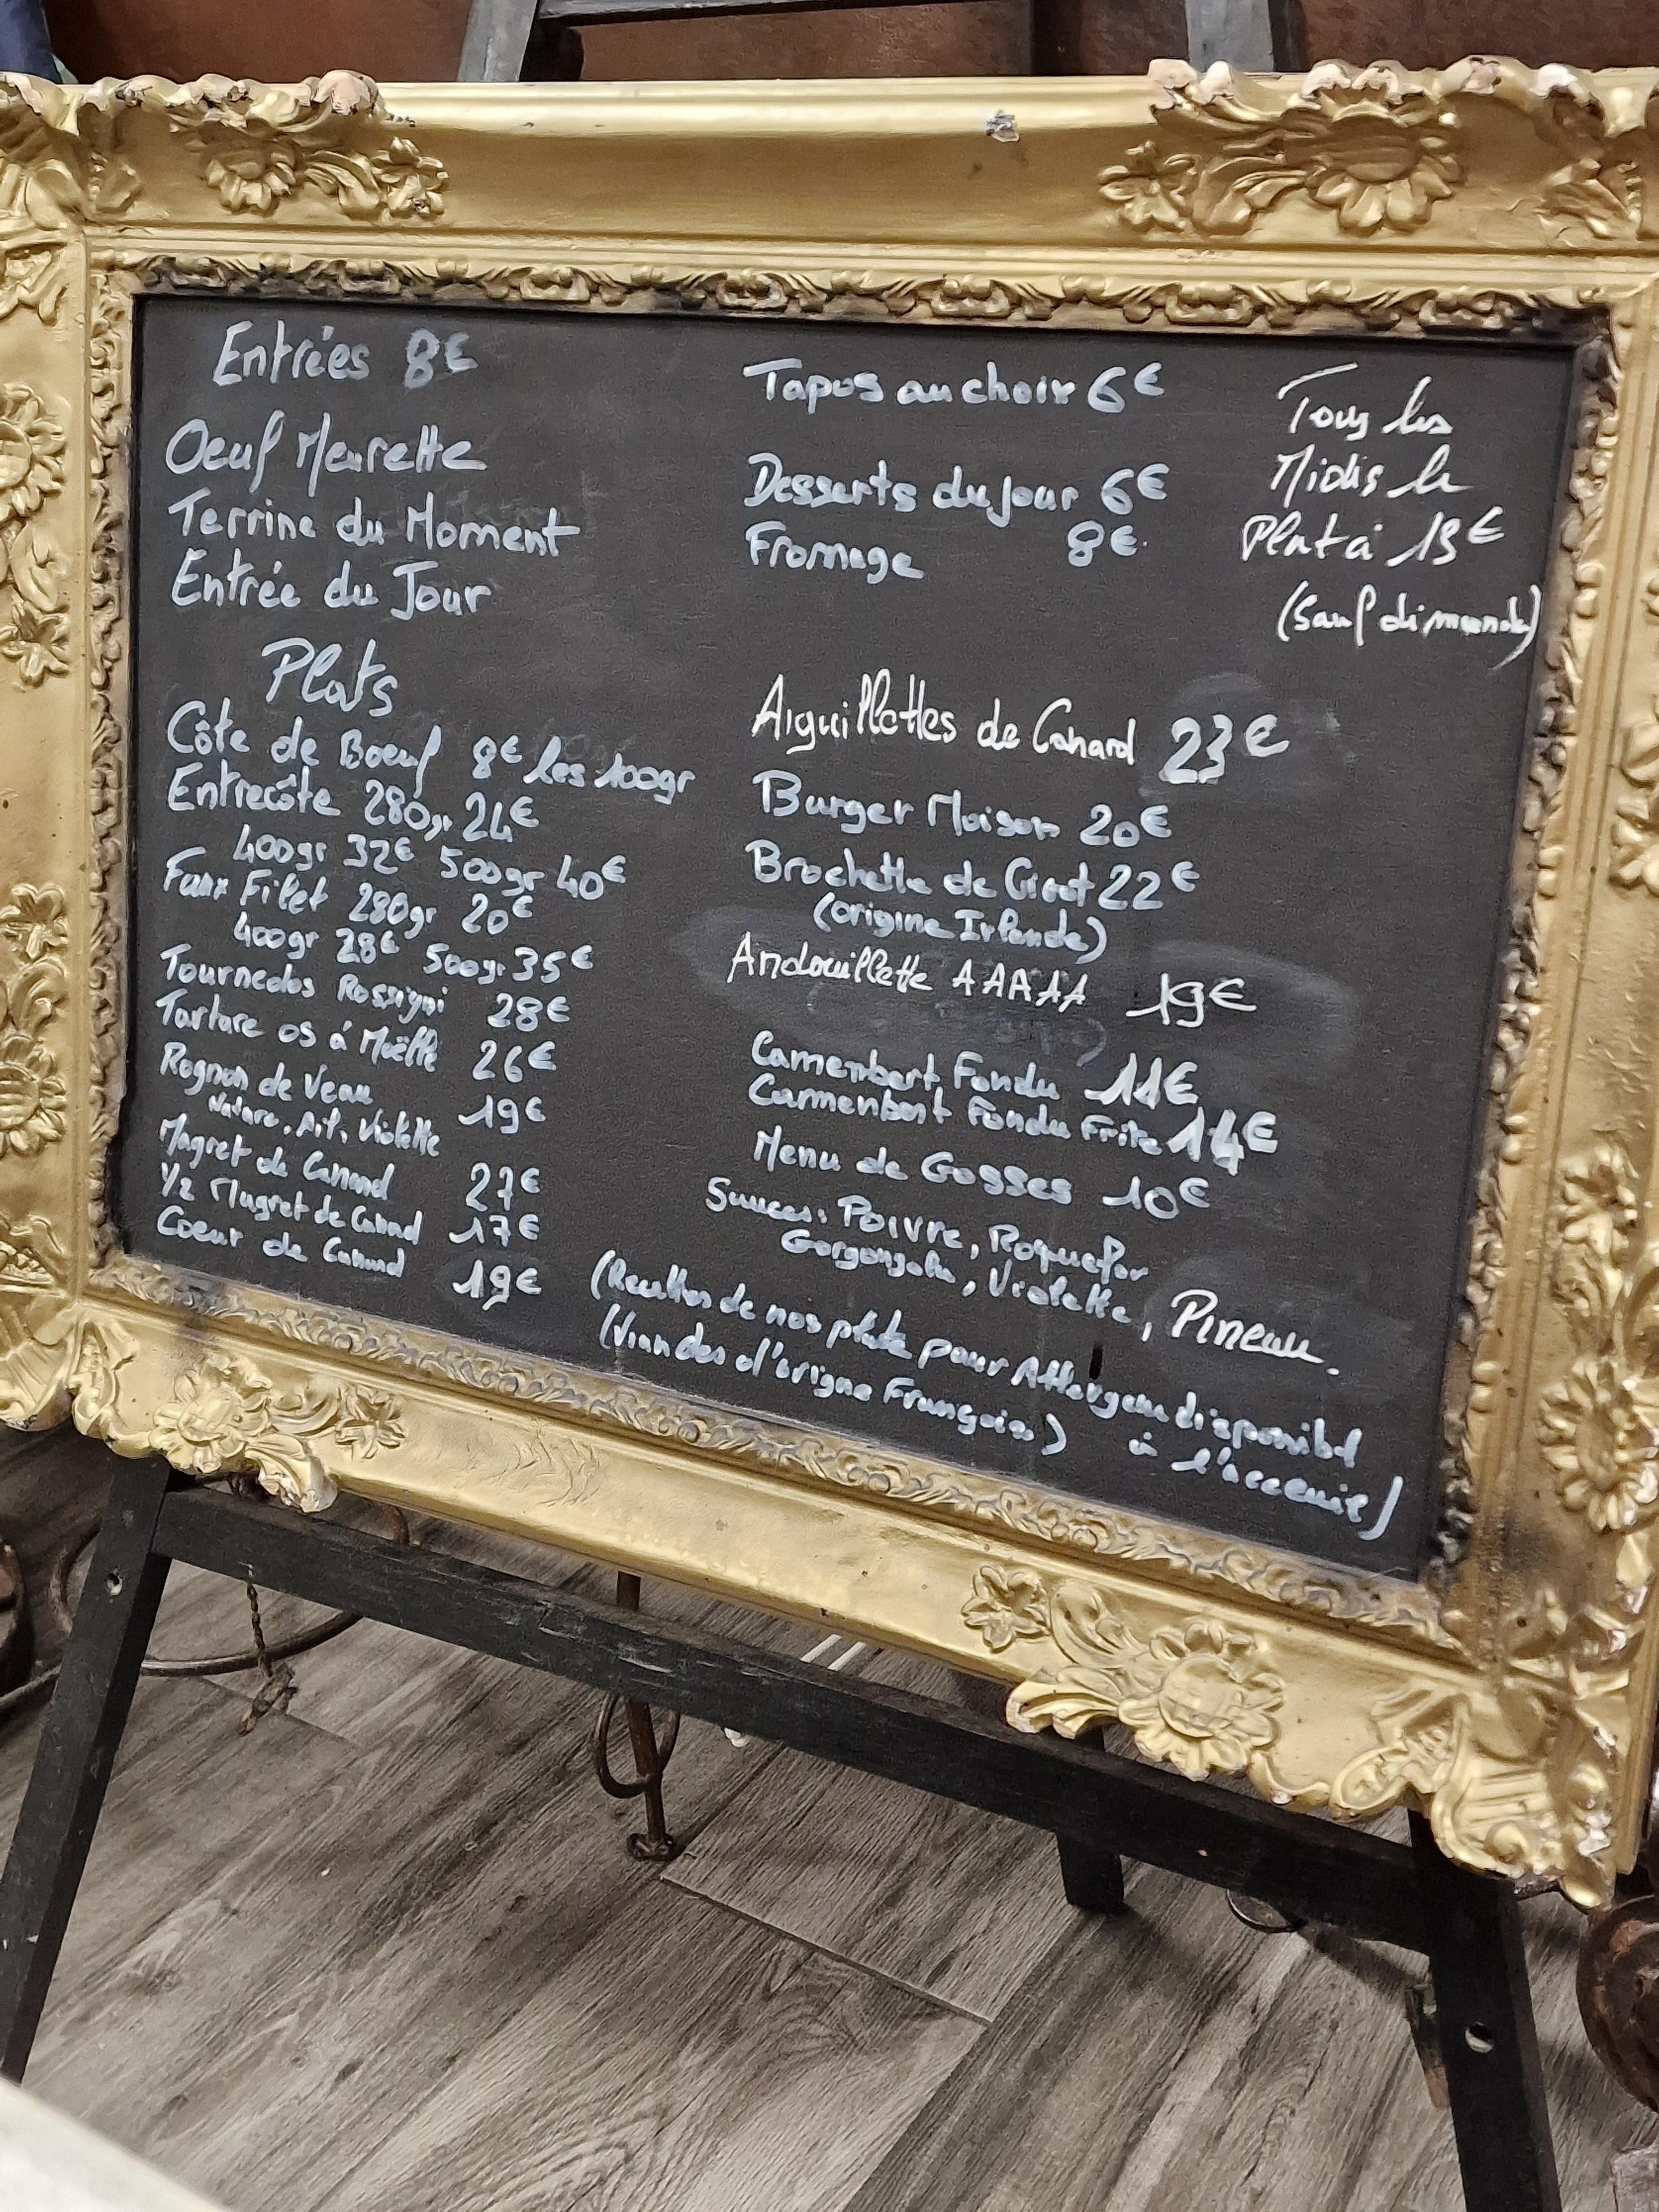 Entrées 8€
Oeuf Meurette
Terrine du Moment
Entrée du Jour
Plats
Côte de Boeuf 8€ les 100gr
Entrecôte 280gr 24€
400gr 32€ 500gr 40€
Faux Filet 280gr 20€
400gr 28€ 500gr 35€
Tournedos Rossigni 28€
Tartare os à Moëlle 26€
Rognon de Veau 19€
Nature, Ail, Violette
Magret de Canard 27€
1/2 Magret de Canard 17€
Coeur de Canard 19€
Tapas au choix 6€
Desserts du jour 6€
Fromage 8€
Aiguillettes de Canard 23€
Burger Maison 20€
Brochette de Gigot 22€
(origine Irlande)
Andouillette AAAAA 19€
Camembert Fondu 11€
Camembert Fondu Frite 14€
Menu de Gosses 10€
Sauces: Poivre, Roquefor
Gorgonzola, Violette, Pineau.
(Recettes de nos plats pour Allergene disponibl
à l'acceuie)
(Viandes d'origne Française)
Tous les
Midis le
Plat à 13€
(Sauf dimanche)